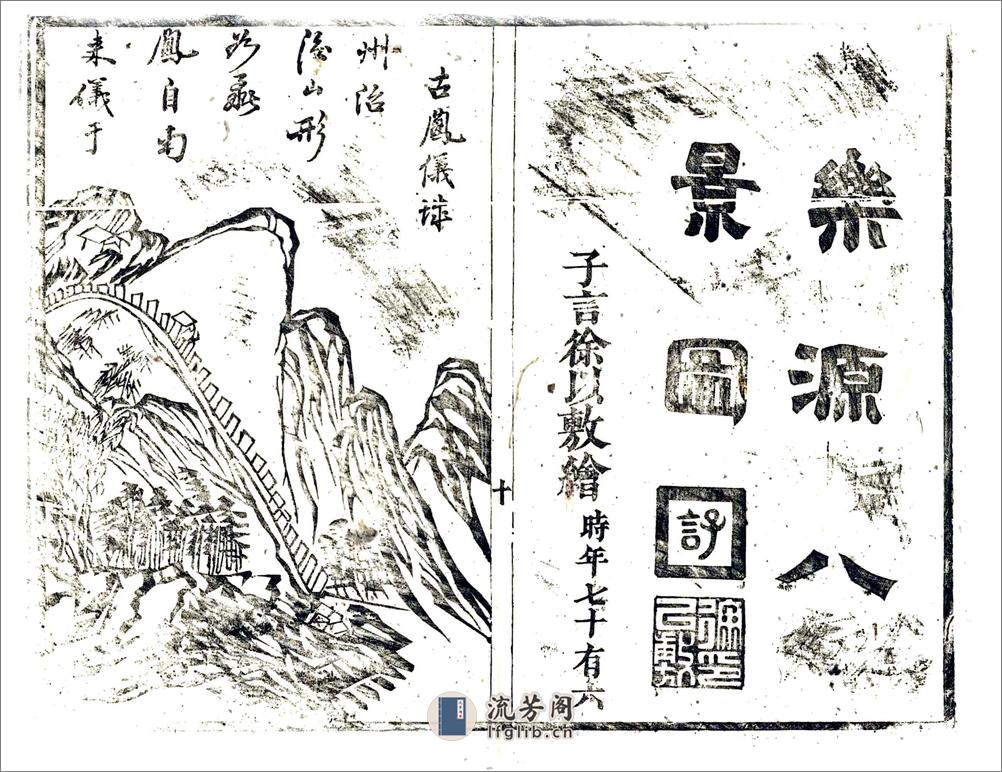 樂源八
景圖
子言徐以敷繪 時年七十有六
十
古鳳儀
州治
後山形
如飛
鳳自南
來儀于
流芳阁
lfglib.cn